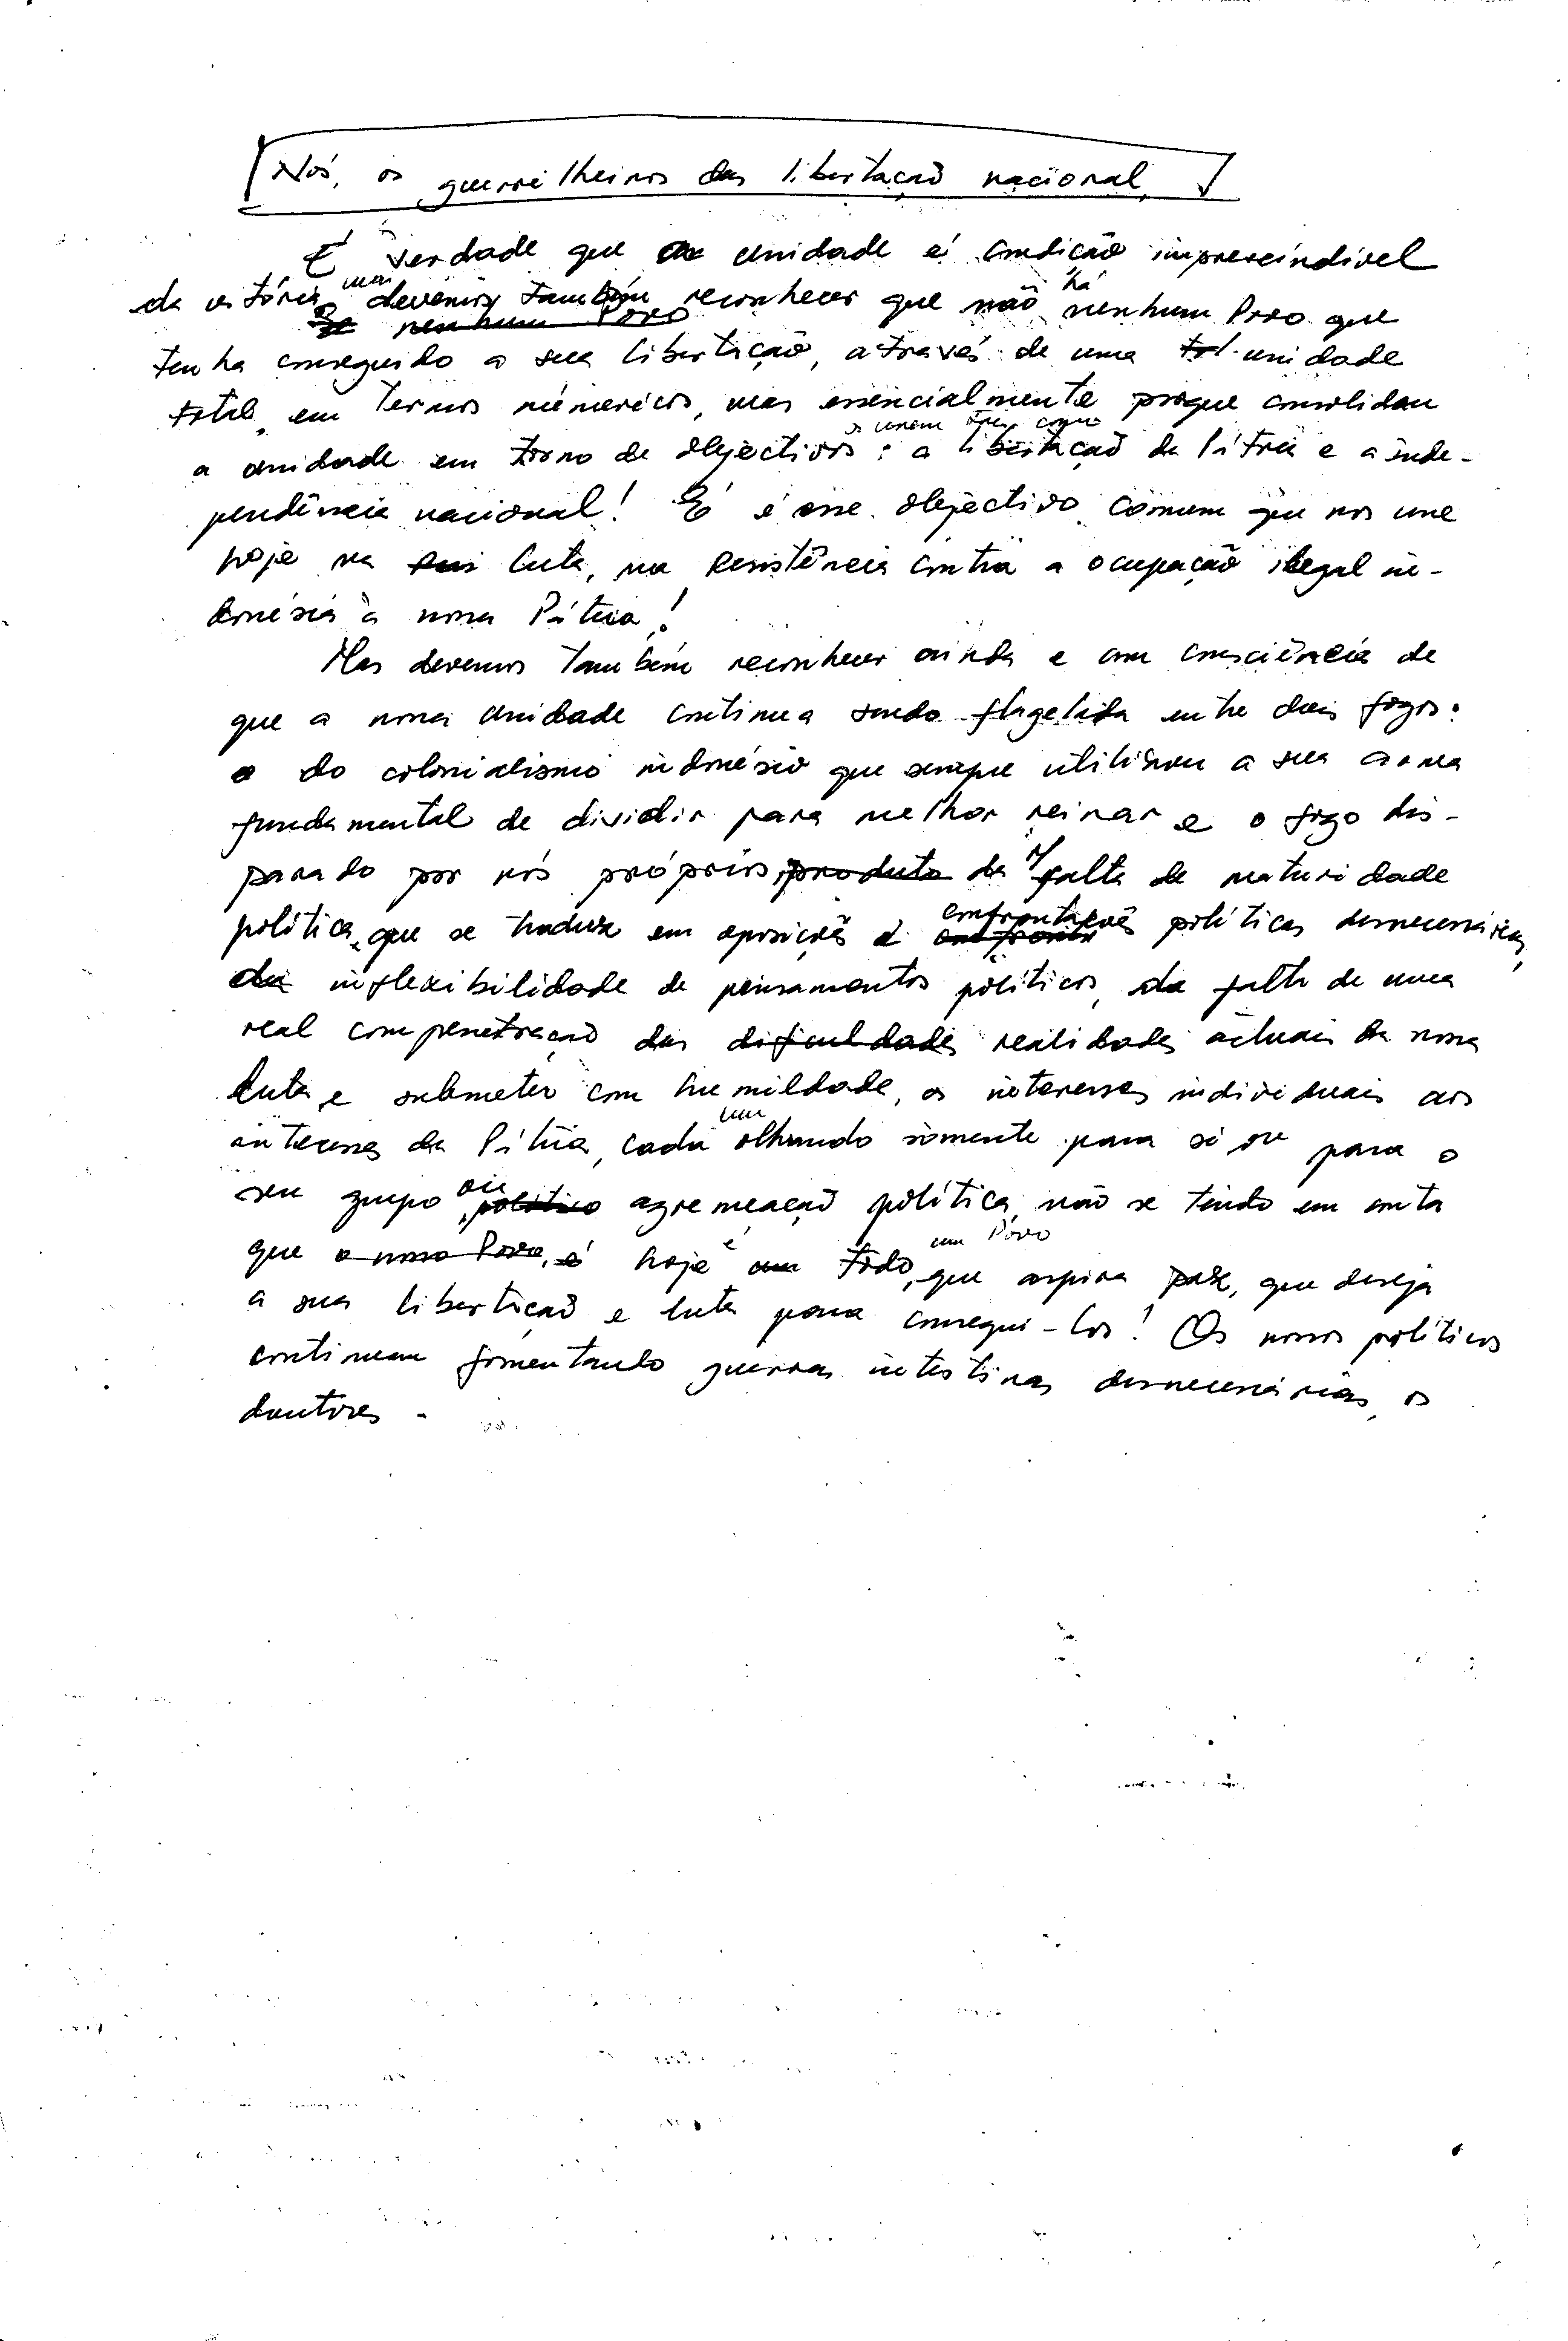 Nós, os guerrilheiros da libertação nacional,
É verdade que a unidade é condição imprescindível
da vitória, mas devemos também reconhecer que não há nenhum Povo que
se nenhum Povo
tenha conseguido a sua libertação, através de uma tal unidade
total, em termos númericos, mas essencialmente porque consolidou
a unidade em torno de objectivos: a libertação da Pátria e a inde-
pendência nacional! E é esse objectivo comum que nos une
hoje na luta, na Resistência contra a ocupação ilegal in-
donésia à nossa Pátria!
Mas devemos também reconhecer ainda e com consciência de
que a nossa unidade continua sendo flagelada entre dois fogos:
o do colonialismo indonésio que sempre utilizou a sua arma
fundamental de dividir para melhor reinar e o fogo dis-
parado por nós próprios, produto da falta de maturidade
política, que se traduz em oposições e confrontações políticas desnecessárias,
da inflexibilidade de pensamentos políticos, da falta de uma
real compenetração das dificuldades realidades actuais da nossa
luta e submeter com humildade, os interesses individuais aos
interesses da Pátria, cada um olhando sòmente para si ou para o
seu grupo ou político agremeação política, não se tendo em conta
que o nosso Povo, é hoje é um todo, um Povo que aspira paz, que deseja
a sua libertação e luta para consegui-los! Os nossos políticos
continuam fomentando guerras intestinas desnecessárias, os
doutores -